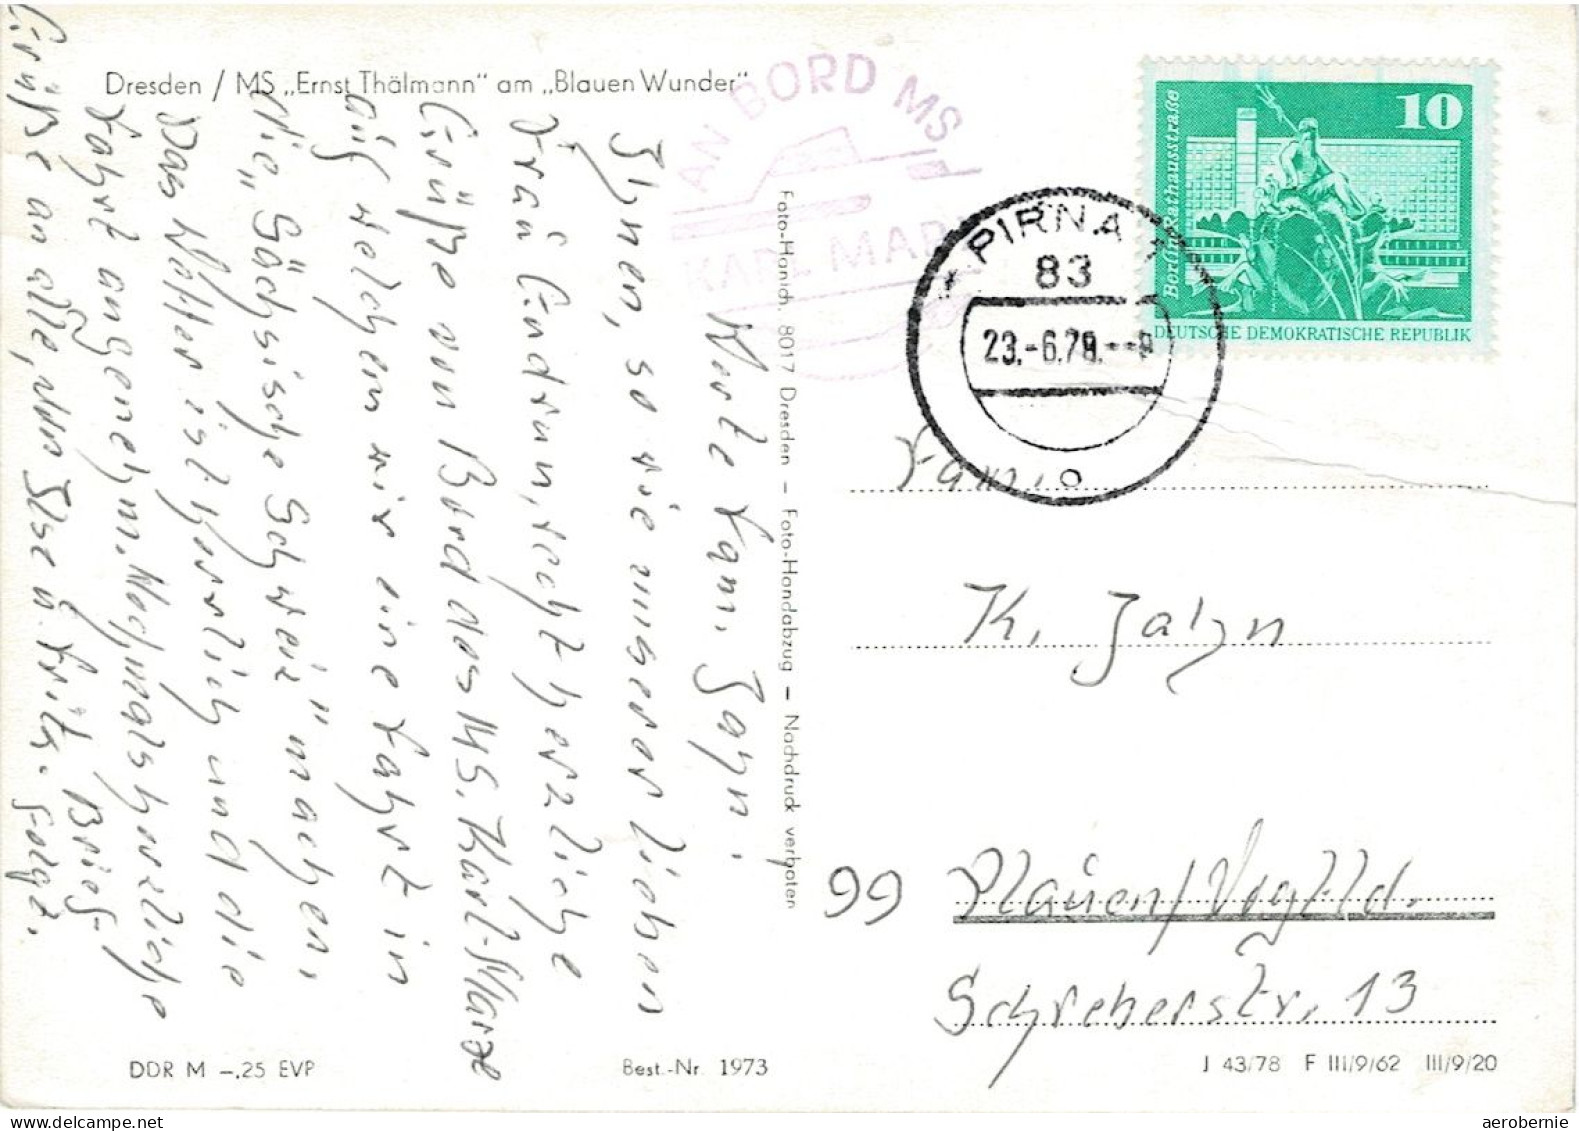 Dresden / MS „Ernst Thälmann" am „Blauen Wunder"
AN BORD MS
KARL MARX
10
Berlin, Rathausstraße
DEUTSCHE DEMOKRATISCHE REPUBLIK
PIRNA 1
83
23.-6.79.
Werte Fam. Jahn!
Ihnen, so wie unserer lieben
Frau Endrun, recht herzliche
Grüße von Bord des MS. Karl-Marx
auf welchem wir eine Fahrt in
die „Sächsische Schweiz" machen,
Das Wetter ist herrlich und die
Fahrt angenehm. Nochmals herzliche
Grüße an alle, von Ilse u. Fritz. Brief-
folgt.
Foto-Hanich, 8017 Dresden – Foto-Handabzug – Nachdruck verboten
Fam.
K. Jahn
99 Plauen/Vogtld.
Schreberstr. 13
DDR M –,25 EVP
Best.-Nr. 1973
J 43/78 F III/9/62 III/9/20
aerobernie